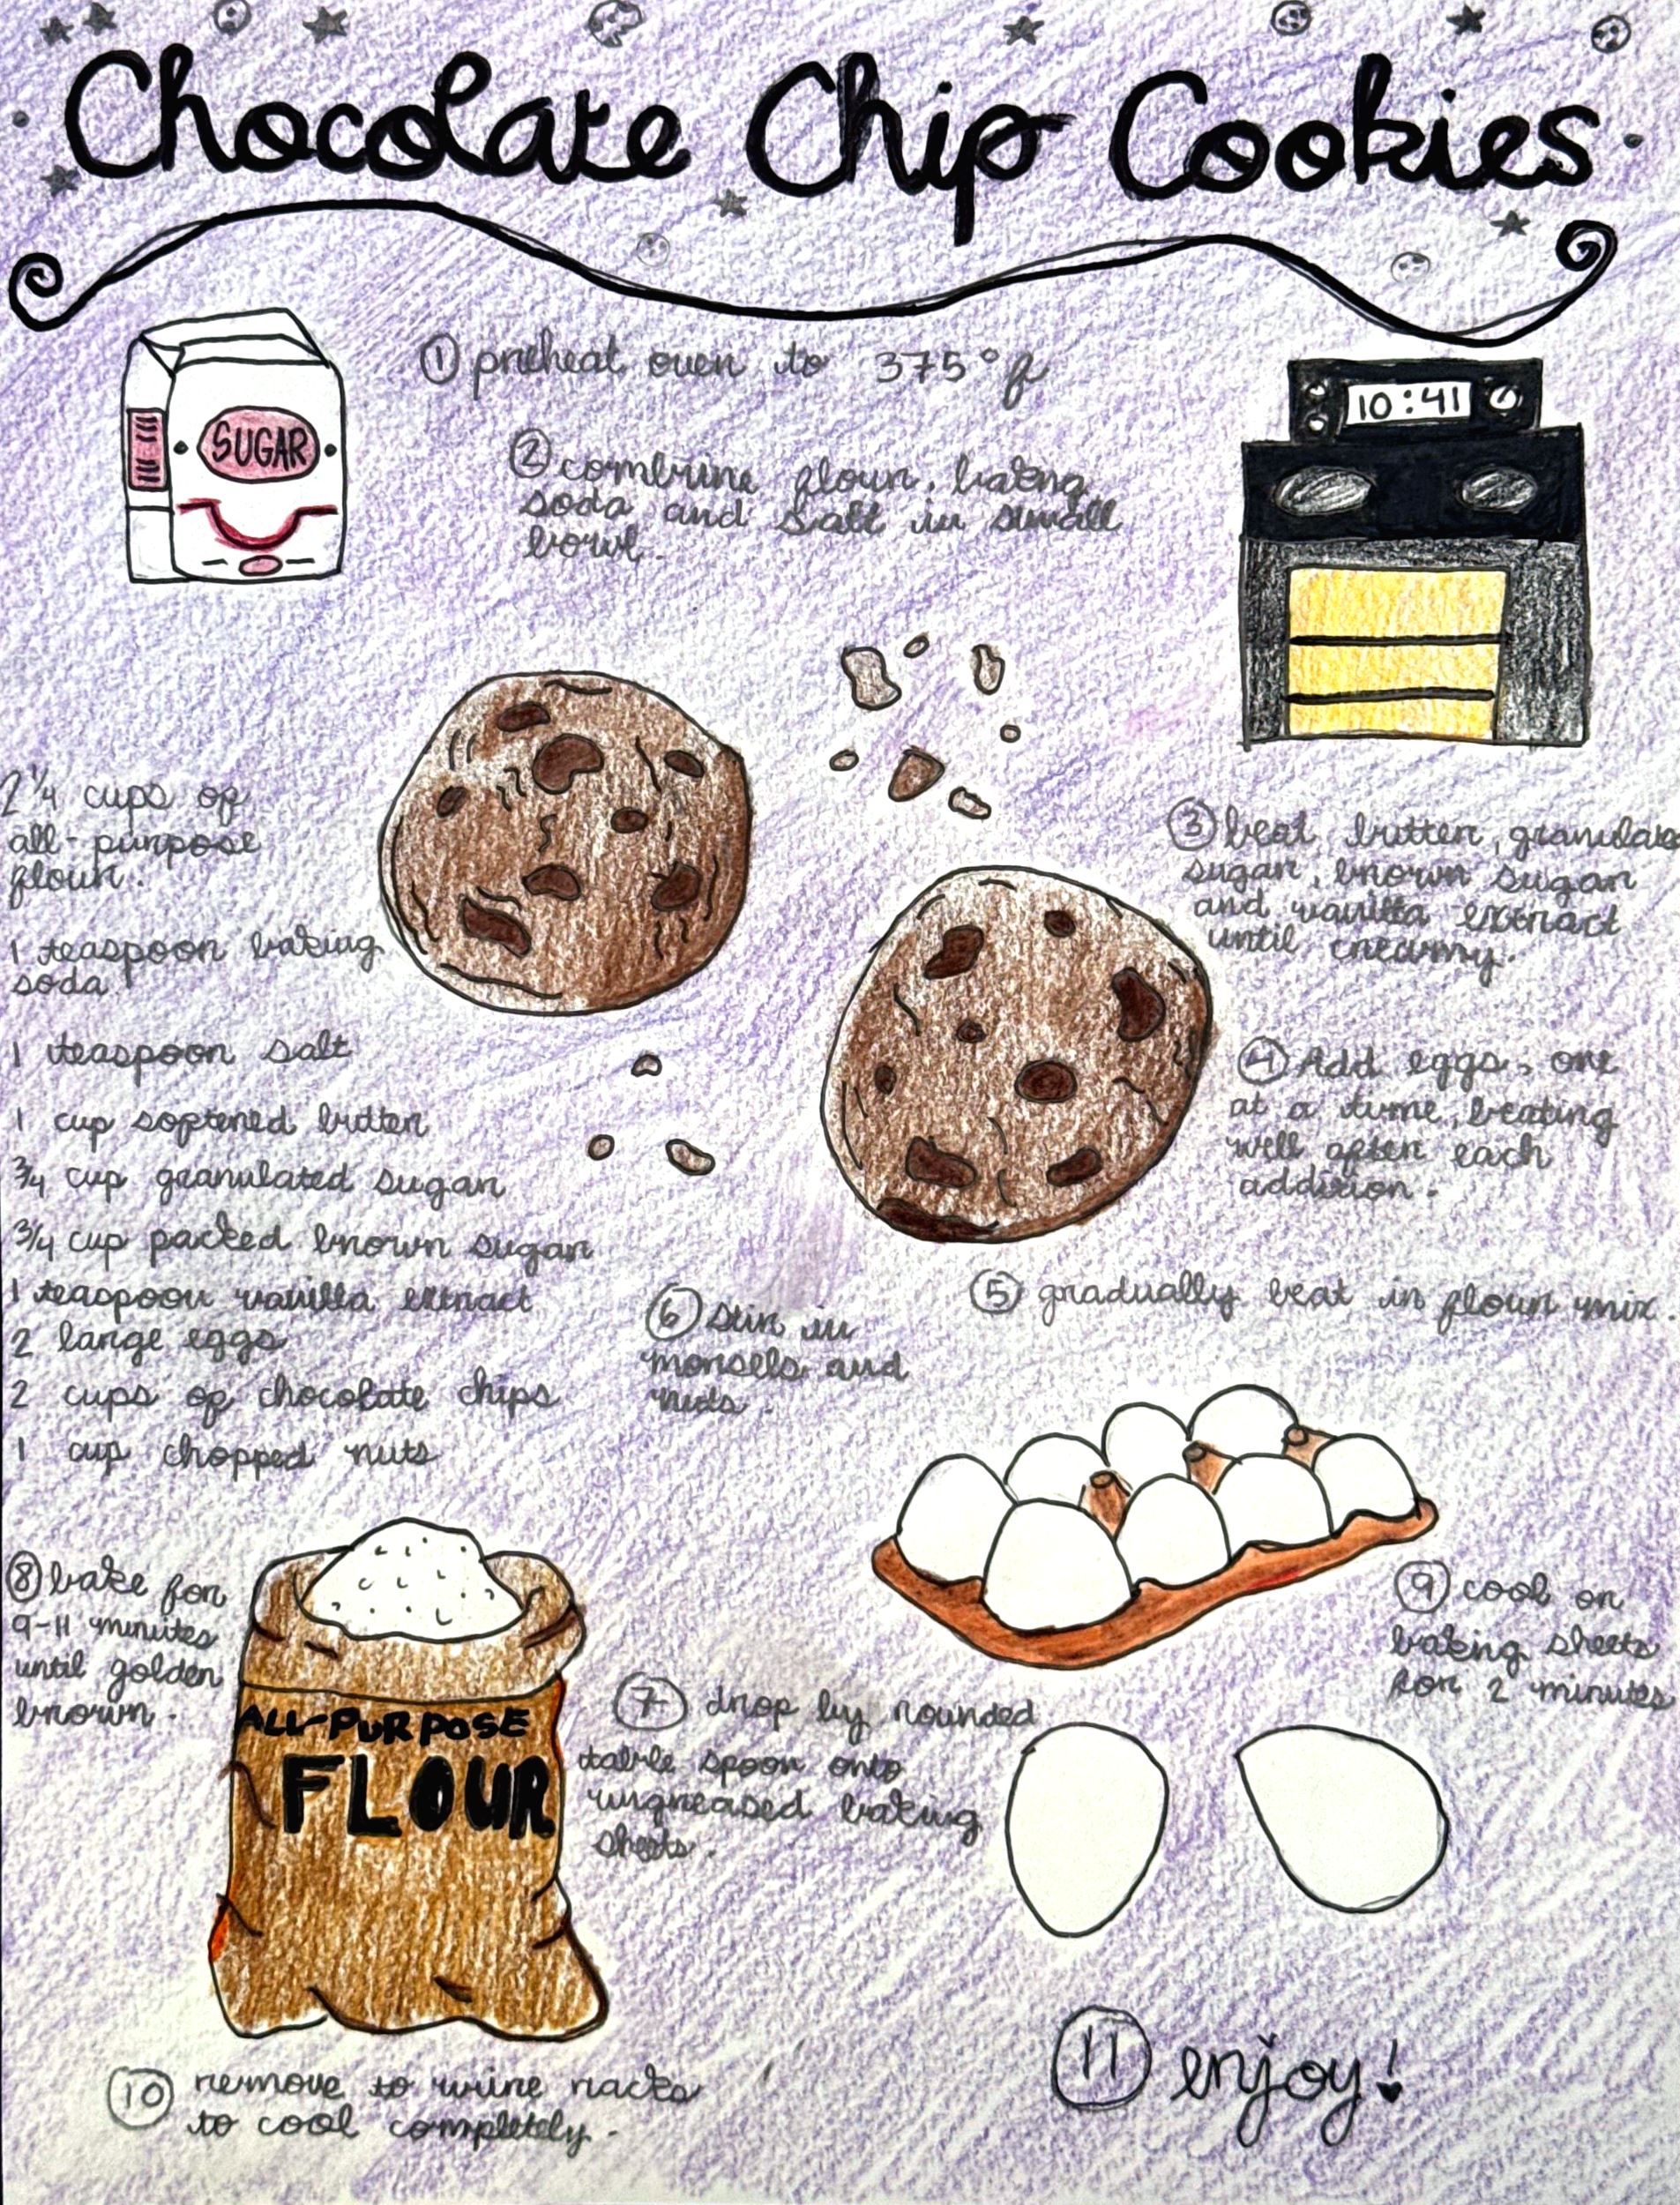 Chocolate Chip Cookies
SUGAR
① preheat oven to 375°f
10:41
② combine flour, baking
soda and salt in small
bowl.
2 1/4 cups of
all-purpose
flour.
1 teaspoon baking
soda
1 teaspoon salt
1 cup softened butter
3/4 cup granulated sugar
3/4 cup packed brown sugar
1 teaspoon vanilla extract
2 large eggs
2 cups of chocolate chips
1 cup chopped nuts
③ beat butter, granulated
sugar, brown sugar
and vanilla extract
until creamy.
④ Add eggs, one
at a time, beating
well after each
addition.
⑤ gradually beat in flour mix.
⑥ Stir in
morsels and
nuts.
⑦ drop by rounded
table spoon onto
ungreased baking
sheets.
⑧ bake for
9-11 minutes
until golden
brown.
ALL-PURPOSE
FLOUR
⑨ cool on
baking sheets
for 2 minutes
⑩ remove to wire racks
to cool completely.
⑪ enjoy!